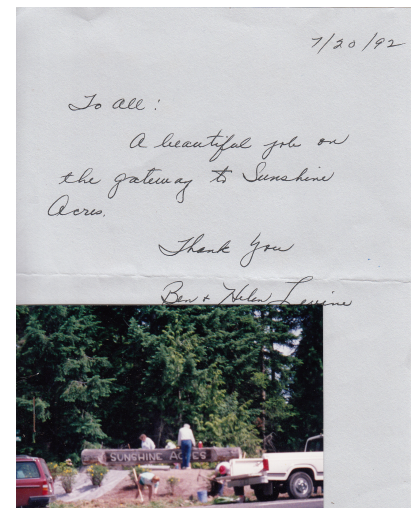 7/20/92
To all:
A beautiful job on
the gateway to Sunshine
Acres.
Thank You
Ben + Helen Levine
SUNSHINE ACRES